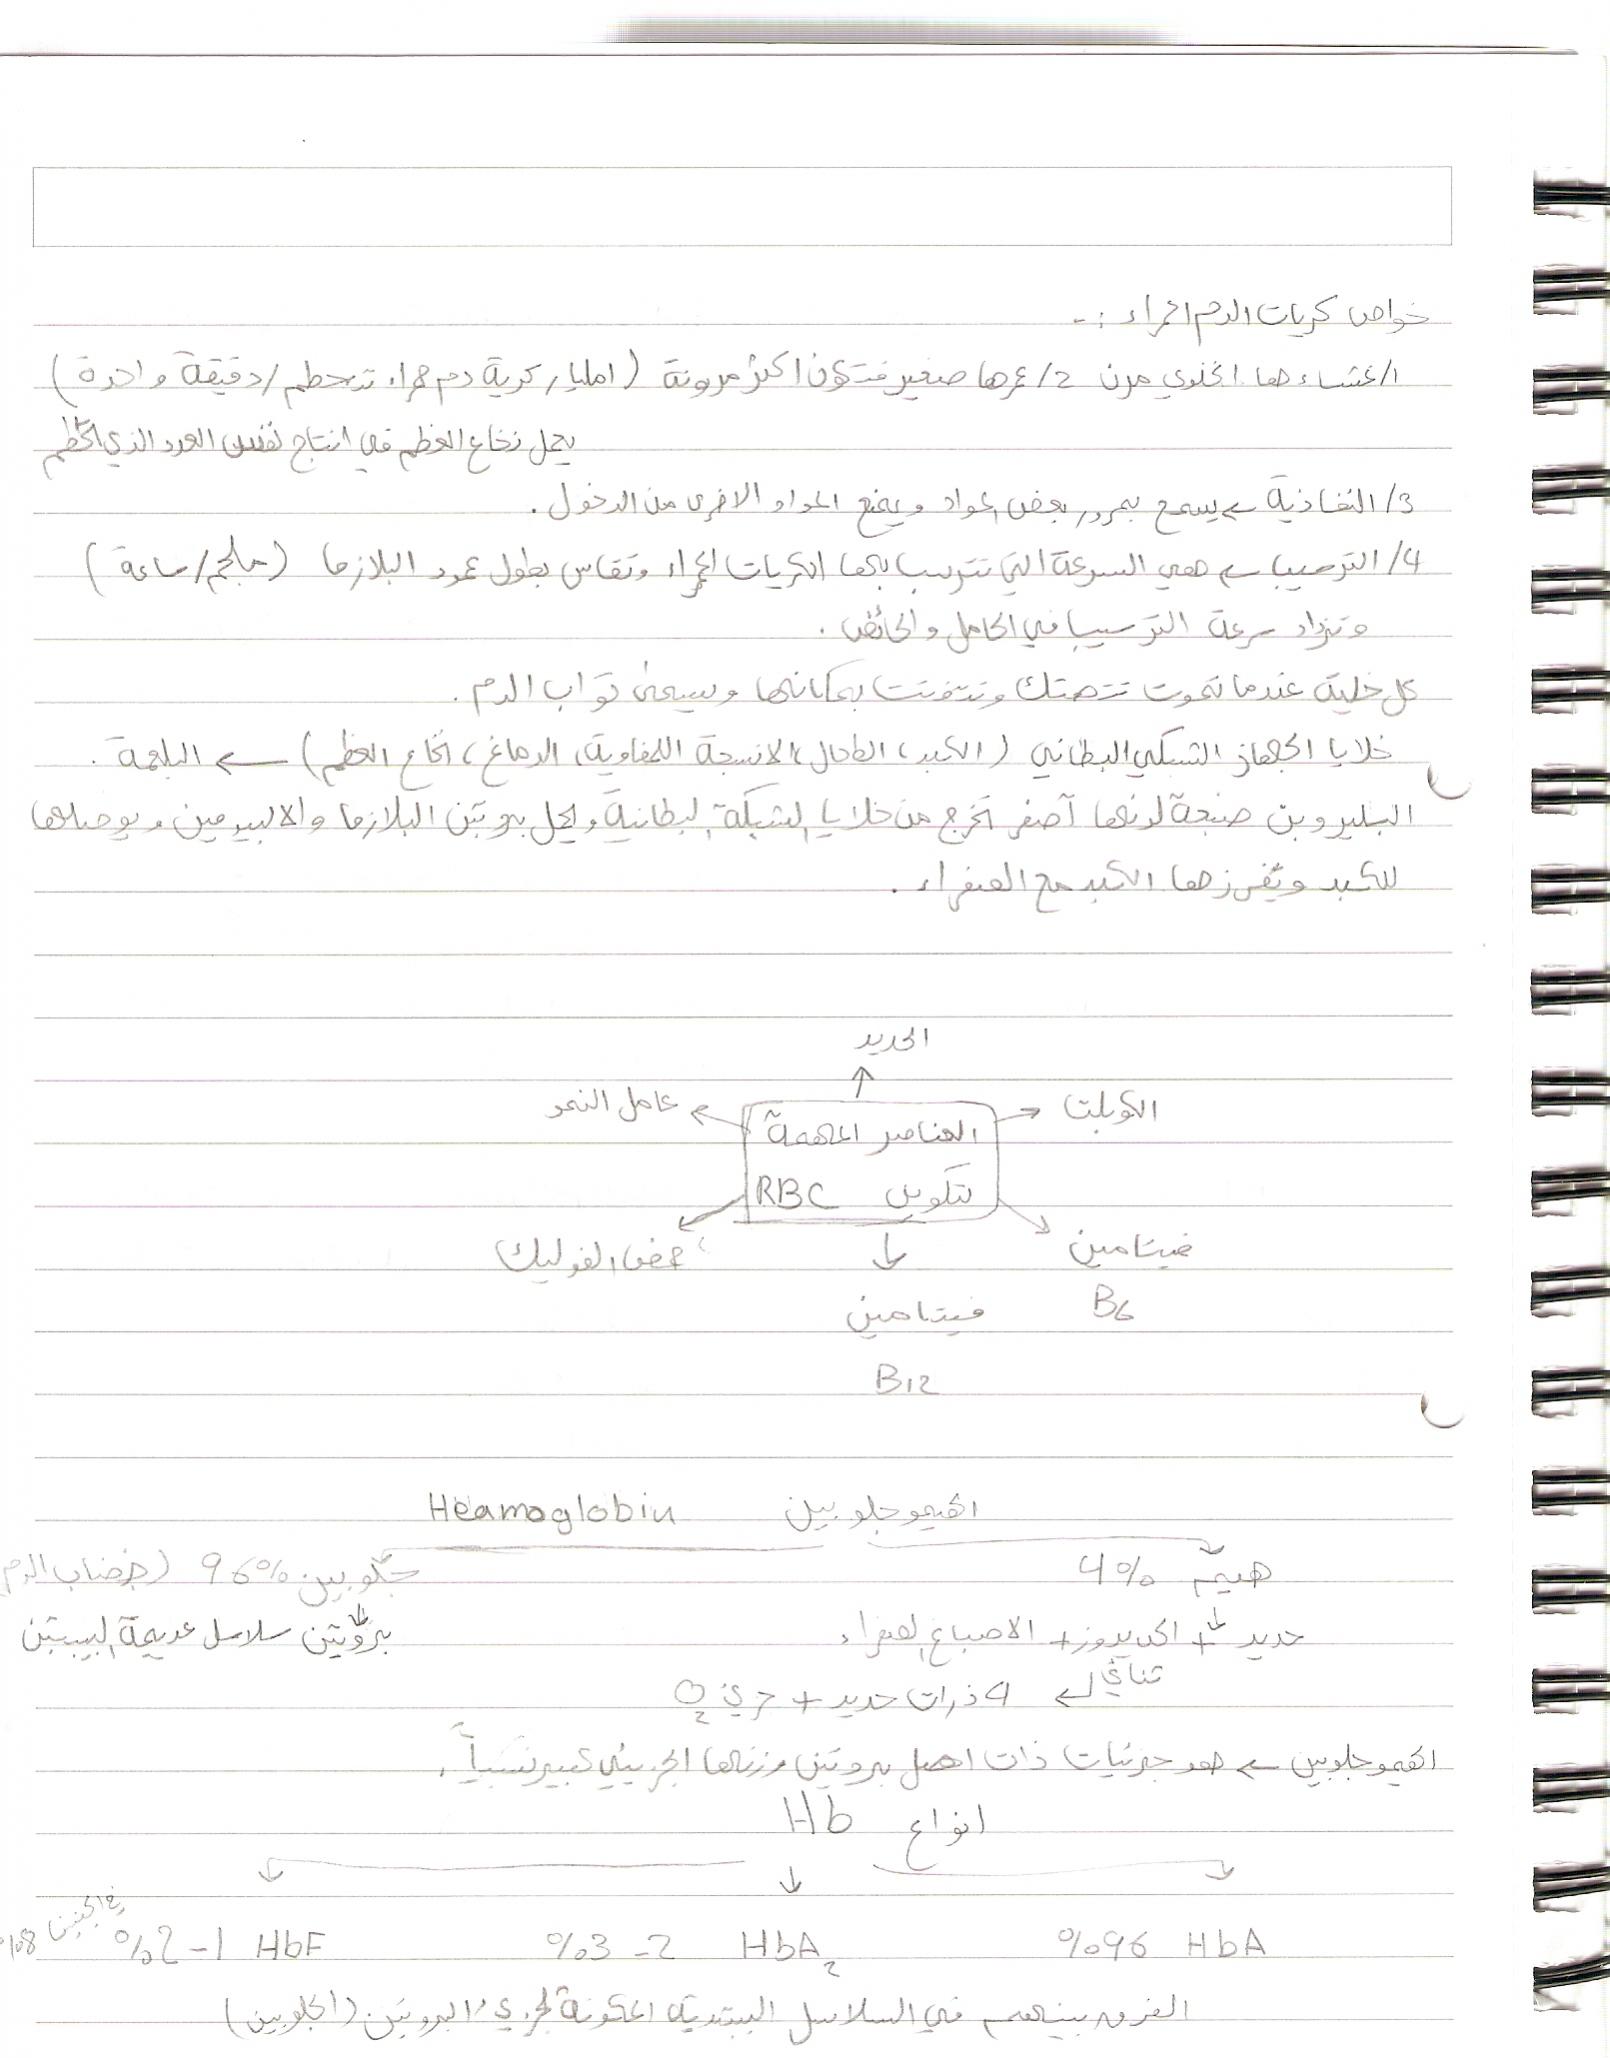 خواص كريات الدم الحمراء :-
1/ غشاءها الخلوي مرن 2/ عمرها صغير فتكون اكثر مرونة (1مليار كرية دم حمراء تتحطم/دقيقة واحدة)
يعمل نخاع العظم في انتاج نفس العدد الذي تحطم
3/ النفاذية ← يسمح بمرور بعض المواد ويمنع المواد الاخرى من الدخول .
4/ الترسيب ← هي السرعة التي تترسب بها الكريات الحمراء وتقاس بطول عمود البلازما (ملجم/ساعة)
وتزداد سرعة الترسيب في الحامل والحائض .
كل خلية عندما تموت تتهتك وتتفتت بمكانها ويسمى تراب الدم .
خلايا الجهاز الشبكي البطاني (الكبد، الطحال، الانسجة اللمفاوية، الدماغ، نخاع العظم) ← البلعمة .
البليروبن صبغة لونها أصفر تخرج من خلايا الشبكة البطانية ويحمل بروتين البلازما والالبيومين ويوصلها
للكبد وتفرزها الكبد مع الصفراء .
الحديد
الكوبلت
عامل النمو
العناصر المهمة
لتكوين RBC
فيتامين
B6
حمض الفوليك
فيتامين
B12
الهيموجلوبين Heamoglobin
هيم 4%
جلوبين 96% (خضاب الدم)
حديد + + الاصباغ الصفراء
بروتين سلاسل عديمة الببتين
ثنائي ← 4 ذرات حديد + جزئ O2
الهيموجلوبين ← هو جزيئات ذات اصل بروتين وزنها الجزيئي كبير نسبياً .
انواع Hb
HbA 96%
HbA2 2-3%
HbF 1-2% في الجنين
الفرق بينهم في السلاسل الببتدية المكونة لجزيء البروتين (الجلوبين)